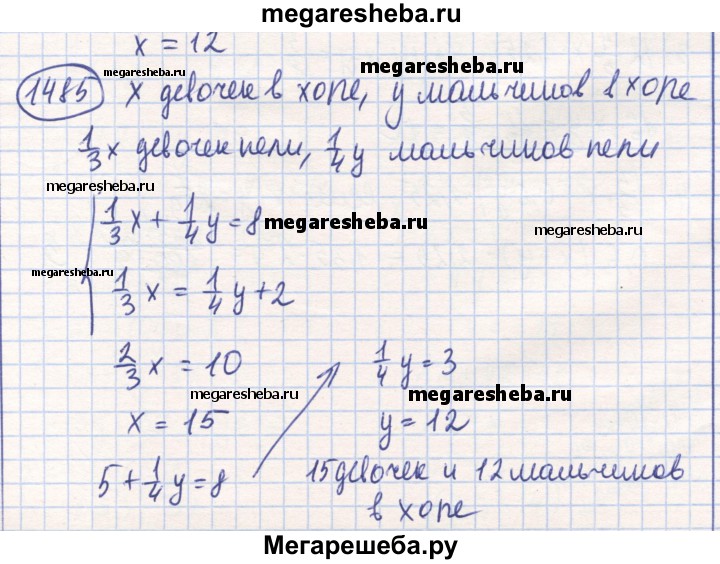 megaresheba.ru
x = 12
megaresheba.ru megaresheba.ru
1485 x девочек в хоре, y мальчиков в хоре
1/3 x девочек пели, 1/4 y мальчиков пели
megaresheba.ru
1/3 x + 1/4 y = 8 megaresheba.ru megaresheba.ru
megaresheba.ru
1/3 x = 1/4 y + 2
2/3 x = 10 1/4 y = 3
megaresheba.ru megaresheba.ru
x = 15 y = 12
5 + 1/4 y = 8 15 девочек и 12 мальчиков
в хоре
Мегарешеба.ру